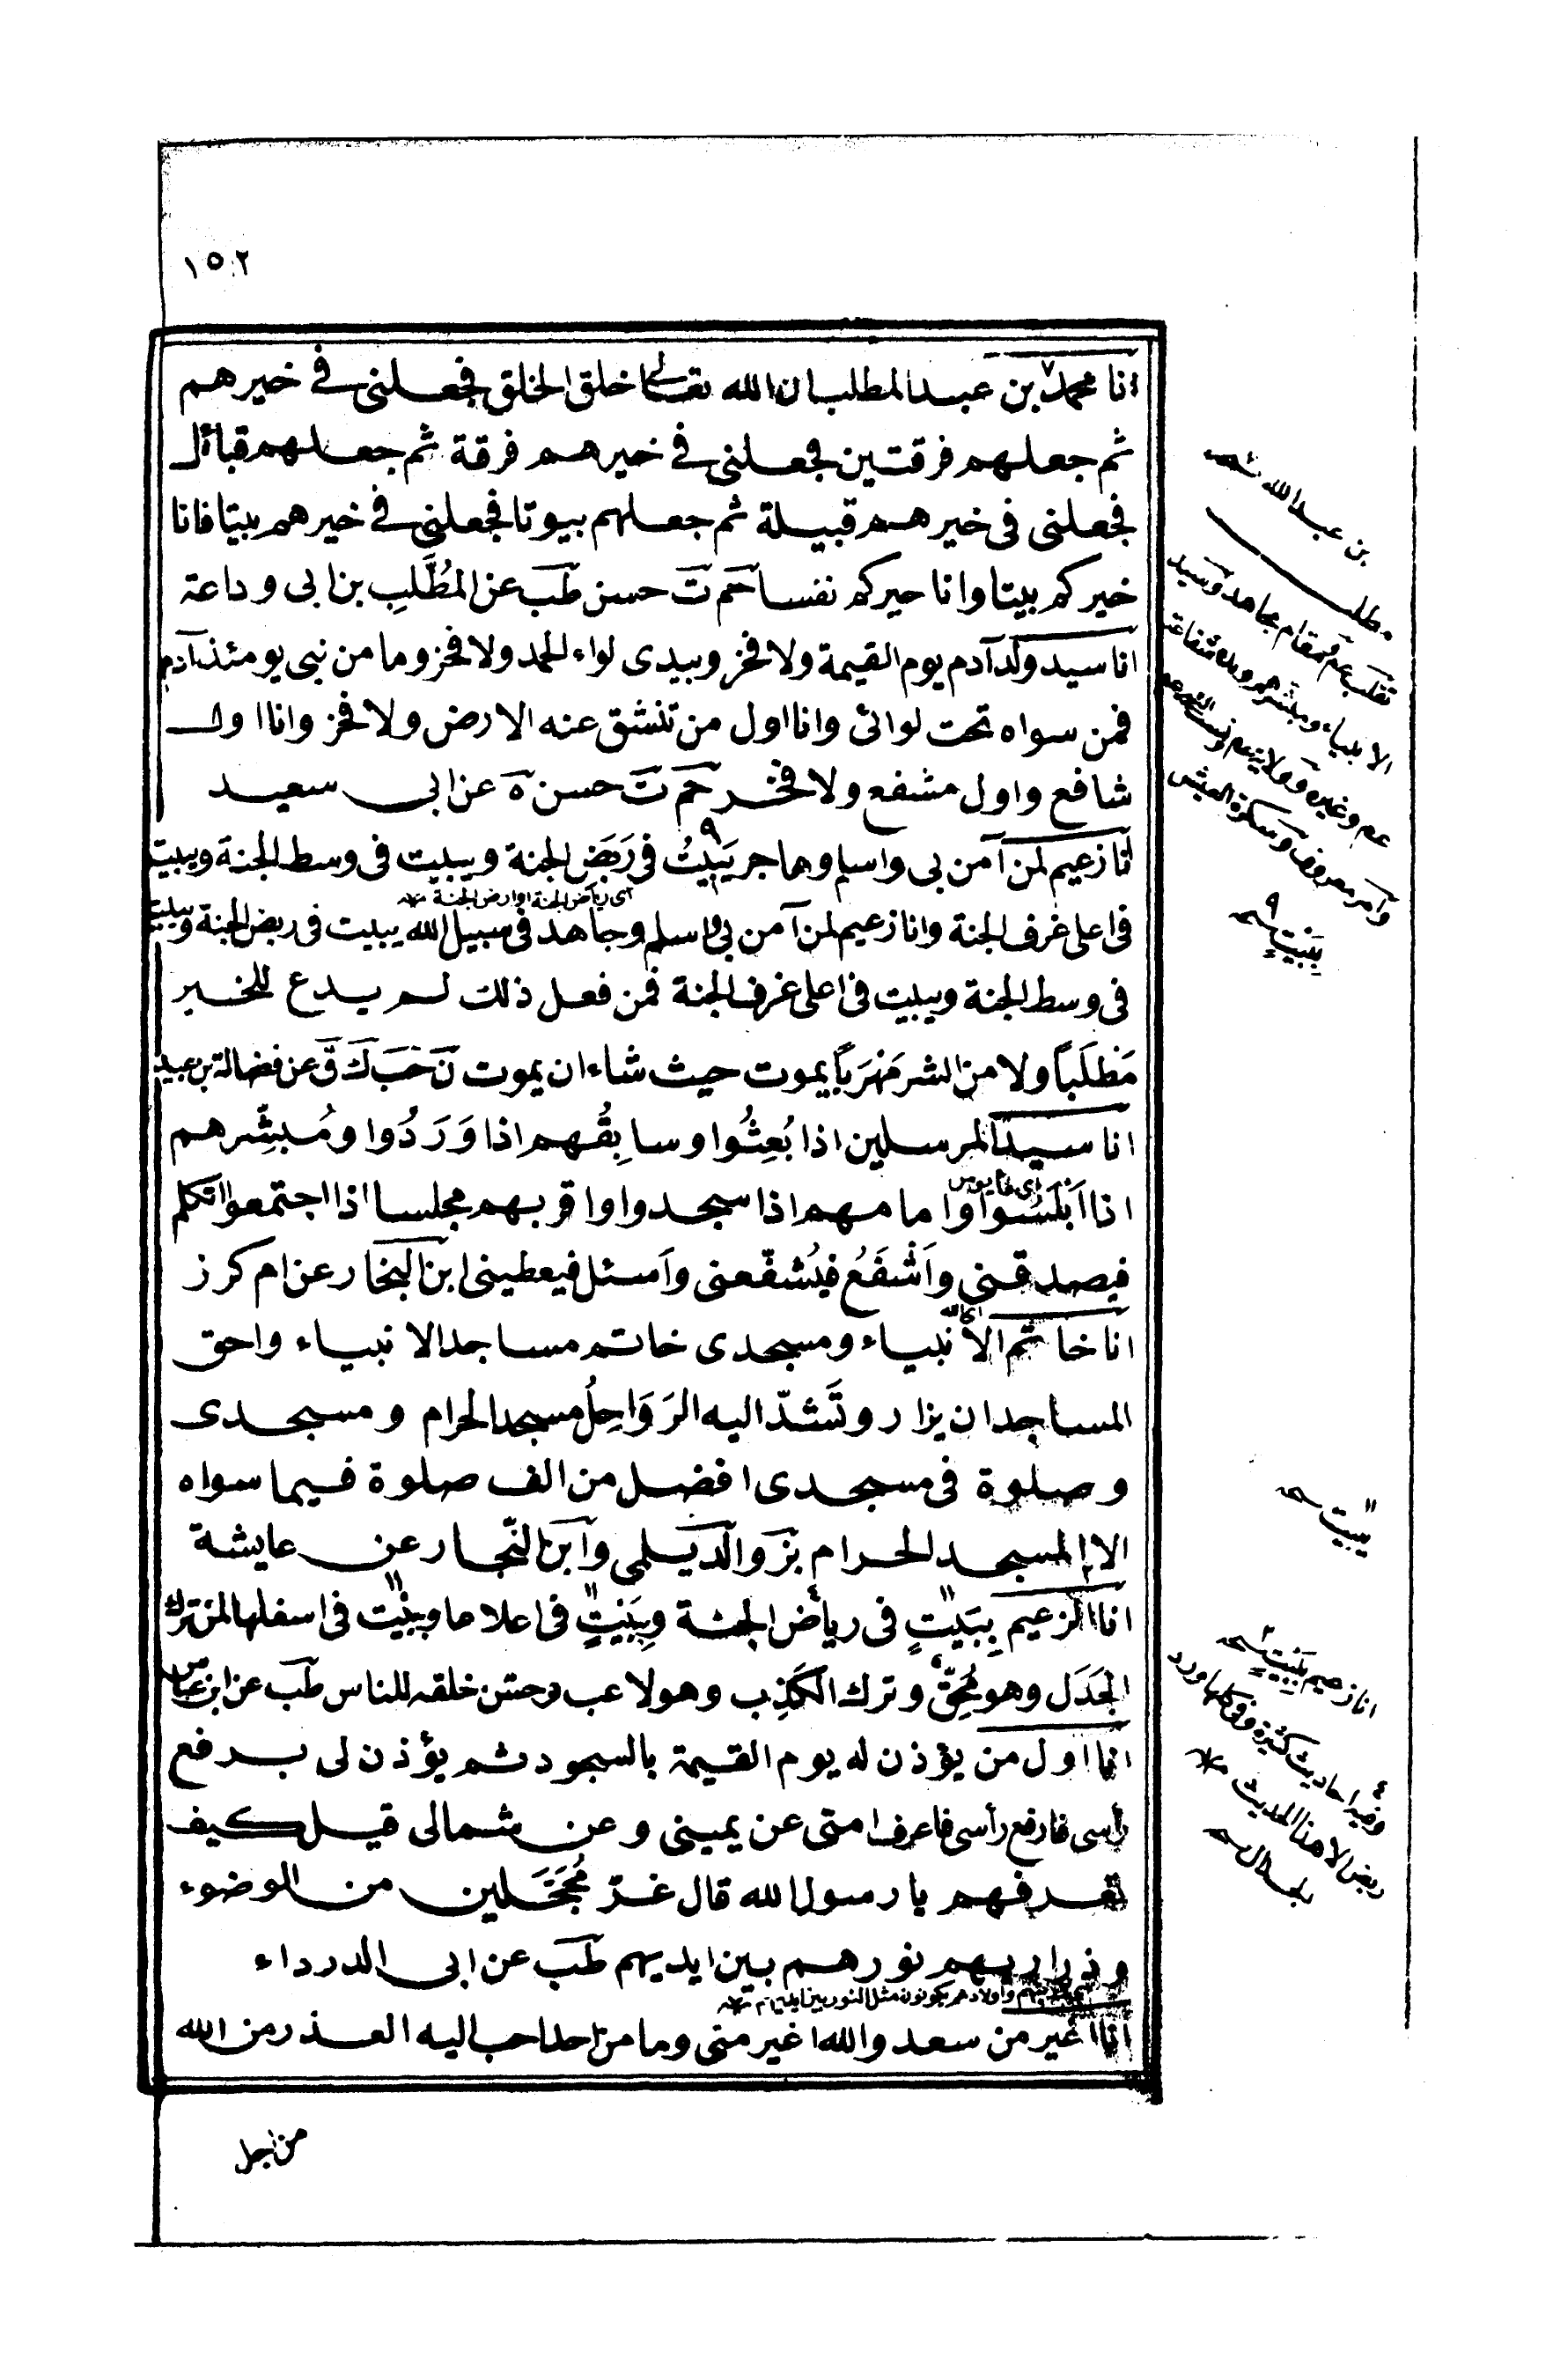 ١٥٢
انا محمد بن عبد المطلب ان الله تعالى خلق الخلق فجعلنى فى خيرهم
ثم جعلهم فرقتين فجعلنى فى خيرهم فرقة ثم جعلهم قبائل
فجعلنى فى خيرهم قبيلة ثم جعلهم بيوتا فجعلنى فى خيرهم بيتا فانا
خيركم بيتا وانا خيركم نفسا حم ت حسن طب عن المُطَّلِبِ بن ابى وداعة
انا سيد ولد آدم يوم القيمة ولا فخر وبيدى لواء الحمد ولا فخر وما من نبى يومئذ آدم
فمن سواه تحت لوائى وانا اول من تنشق عنه الارض ولا فخر وانا اول
شافع واول مشفع ولا فخر حم ت حسن ه عن ابى سعيد
انا زعيم لمن آمن بى واسلم وهاجر يَبيْتُ فى رَبَضِ الجنة وببيت فى وسط الجنة وببيت
اى رياض الجنة او ارض الجنة
فى اعلى غرف الجنة وانا زعيم لمن آمن بى واسلم وجاهد فى سبيل الله ببيت فى ربض الجنة وببيت
فى وسط الجنة وببيت فى اعلى غرف الجنة فمن فعل ذلك لم يدع للخير
مَطْلَباً ولا من الشر مَهْرَباً يموت حيث شاء ان يموت ن حب ك ق عن فضالة بن عبيد
انا سيد المرسلين اذا بُعِثُوا وسابِقُهم اذا وَرَدُوا ومُبشِّرهم
اذا اَبْلَسُوا وامامهم اذا سجدوا واقربهم مجلسا اذا اجتمعوا اتكلم
فيصدقنى واَشْفَعُ فيُشفّعنى واَسئل فيعطينى ابن النجار عن ام كرز
انا خاتم الانبياء ومسجدى خاتم مساجد الانبياء واحق
المساجد ان يزار وتَشدّ اليه الرَوَاحِلُ مسجد الحرام ومسجدى
وصلوة فى مسجدى افضل من الف صلوة فيما سواه
الا المسجد الحرام بز والديلمى وابن النّجار عن عايشة
انا الزعيم بِبَيْتٍ فى رياض الجنة وبِبَيْتٍ فى اعلاها وببيت فى اسفلها لمن ترك
الجَدَل وهو مُحِقّ وترك الكَذِب وهو لاعب وحسّن خلقه للناس طب عن ابن عباس
انا اول من يؤذن له يوم القيمة بالسجود ثم يؤذن لى برفع
رأسى فارفع رأسى فاعرف امتى عن يمينى وعن شمالى قيل كيف
تعرفهم يا رسول الله قال غرّ مُحَجَّلين من الوضوء
وذراريهم نورهم بين ايديهم طب عن ابى الدرداء
واولادهم يكونون مثل النور بين ايديهم
انا اغير من سعد والله اغير منى وما من احد احب اليه العذر من الله
من اجل
بن عبد الله
مطلب
بِبَيْتٍ
ببيت
انا زعيم بِبَيْتٍ
وفيه احاديث كثيرة وفى كلها ورد
ربض الا هذا الحديث